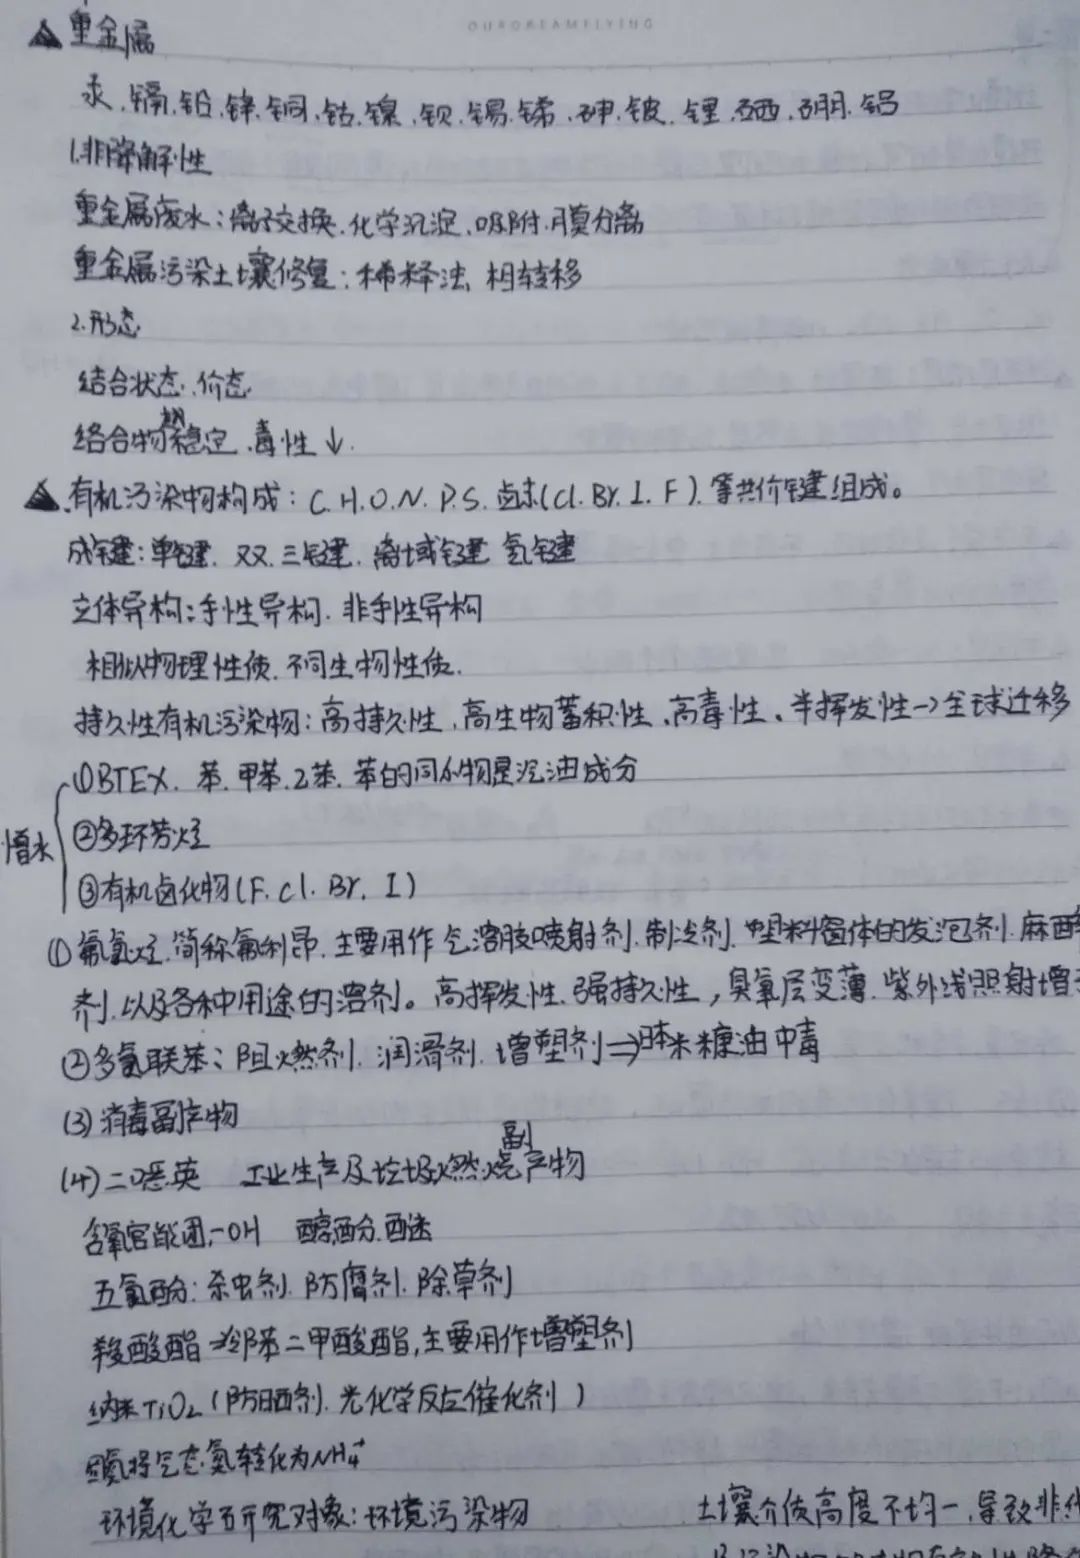 OURDREAMFLYING
▲重金属
汞.镉.铅.锌.铜.钴.镍.钡.锡.锑.砷.铍.锂.硒.硼.铝
1.非降解性
重金属废水:离子交换.化学沉淀.吸附.膜分离
重金属污染土壤修复:稀释法.相转移
2.形态
结合状态.价态
越
络合物稳定.毒性↓.
▲.有机污染物构成:C.H.O.N.P.S.卤素(Cl.Br.I.F).等共价键组成。
成键:单键.双.三键.离域键 氢键
立体异构:手性异构.非手性异构
相似物理性质.不同生物性质.
持久性有机污染物:高持久性.高生物蓄积性.高毒性、半挥发性→全球迁移
①BTEX.苯.甲苯.乙苯.苯的同分物是汽油成分
②多环芳烃
憎水
③有机卤化物(F.cl.Br.I)
①氟氯烃.简称氟利昂.主要用作气溶胶喷射剂.制冷剂.塑料固体的发泡剂.麻醉
剂.以及各种用途的溶剂。高挥发性.强持久性,臭氧层变薄.紫外线照射增
②多氯联苯:阻燃剂.润滑剂.增塑剂⇒日本米糠油中毒
(3)消毒副产物
副
(4)二噁英 工业生产及垃圾燃烧产物
含氧官能团,-OH 醇.酚.醚
五氯酚:杀虫剂.防腐剂.除草剂
羧酸酯→邻苯二甲酸酯,主要用作增塑剂
纳米TiO₂(防晒剂.光化学反应催化剂)
固氮将气态氮转化为NH₄⁺
环境化学研究对象:环境污染物
土壤介质高度不均一.导致非